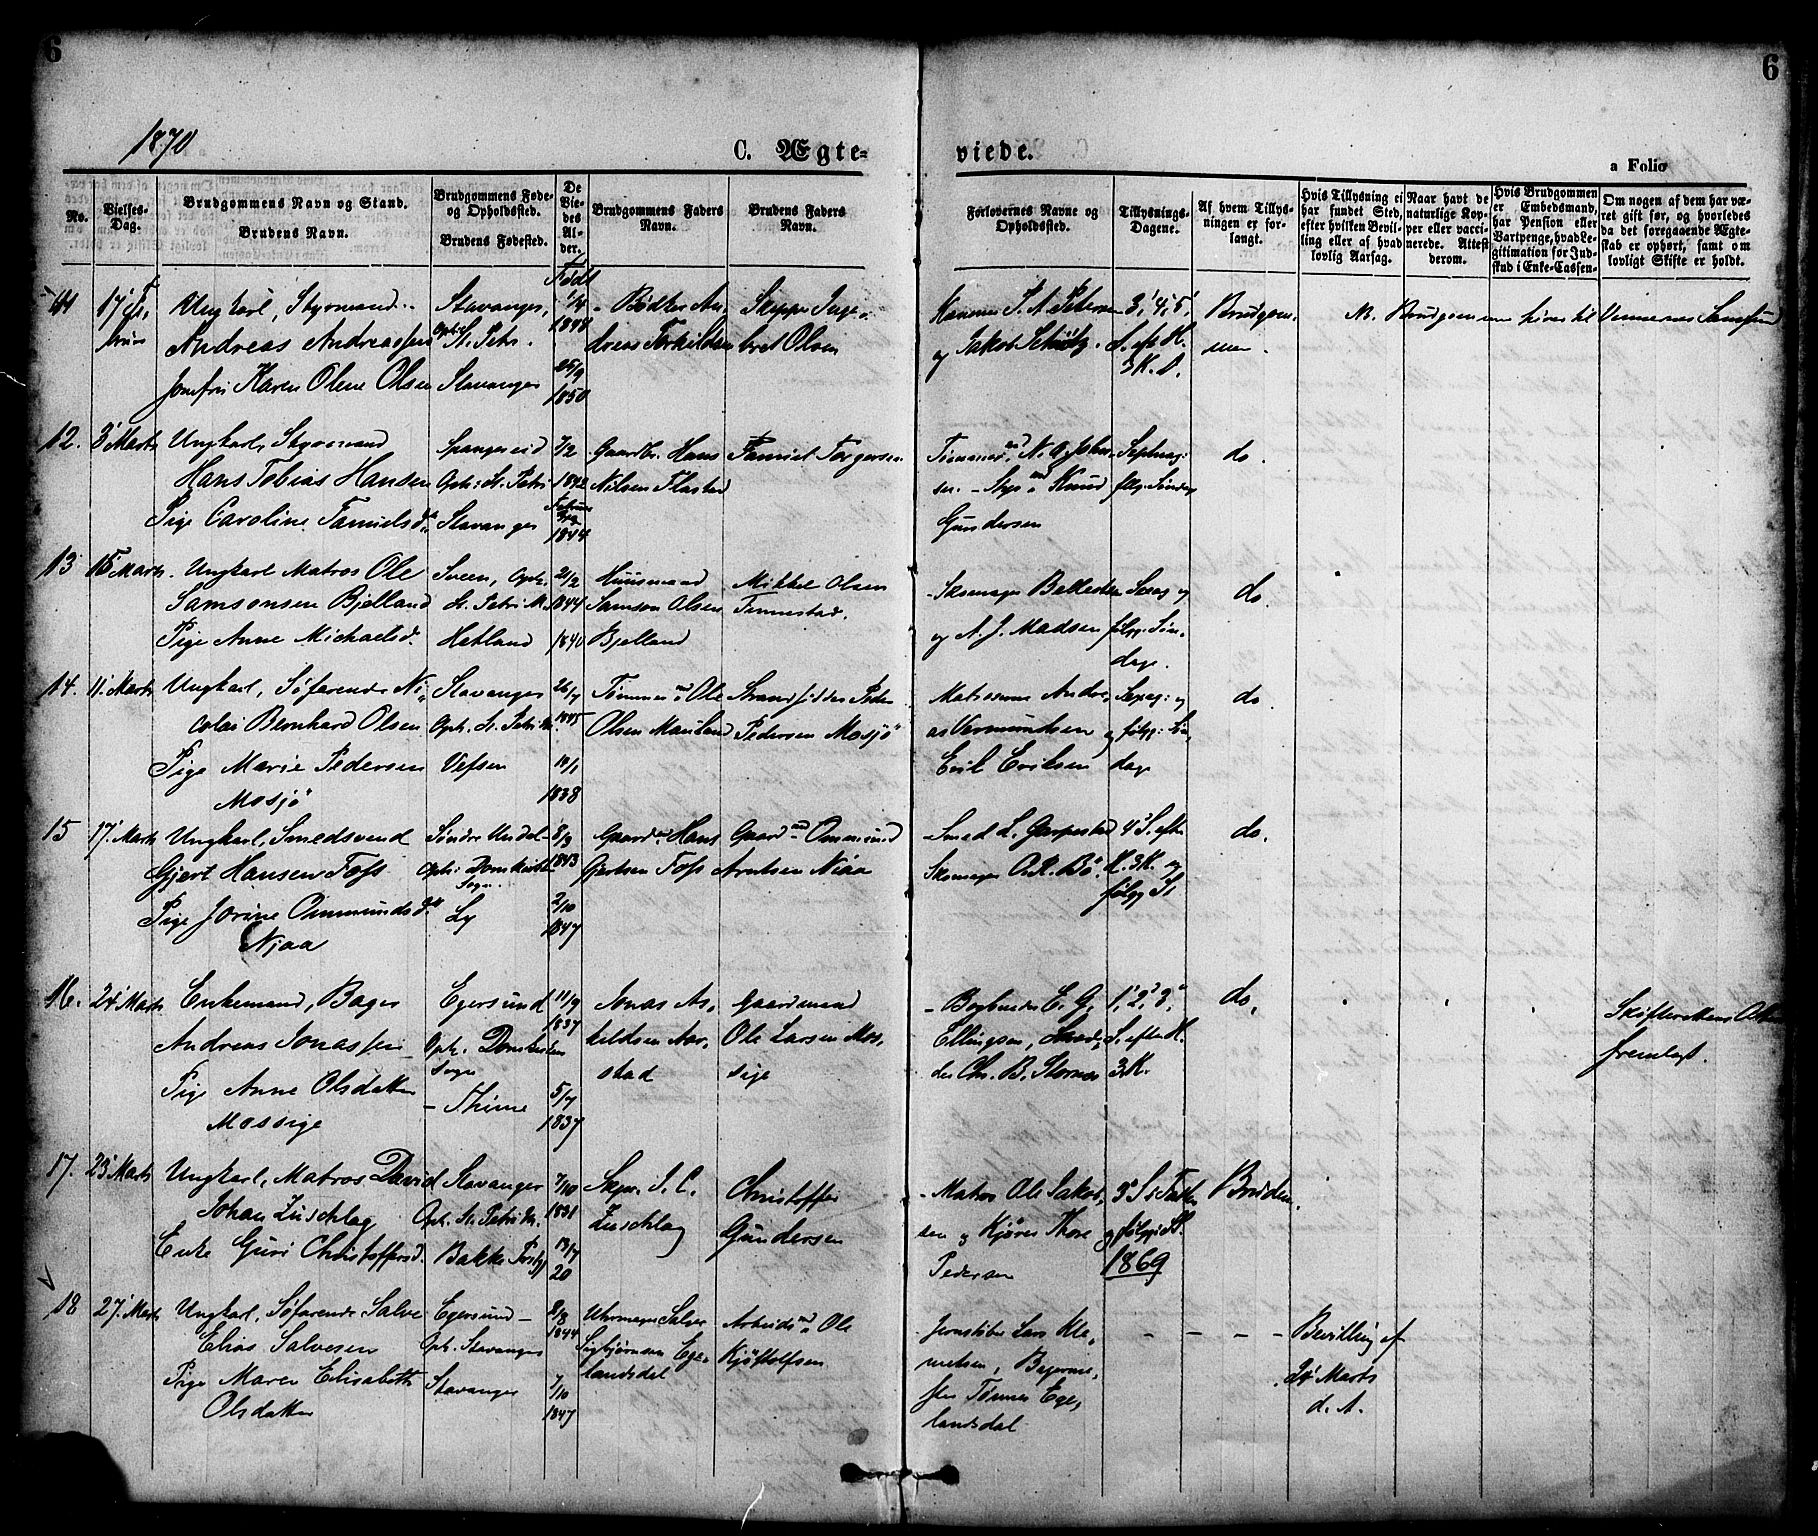 6
6
1870
C. Ægte-
viede.
a Folio
No.
Vielses-
Dag.
Brudgommens Navn og Stand.
Brudens Navn.
Brudgommens Føde-
og Opholdssted.
Brudens Fødested.
De
Vie-
des
Al-
der.
Brudgommens Faders
Navn.
Brudens Faders
Navn.
Forlovernes Navne og
Opholdssted.
Tillysnings-
Dagene.
Af hvem Tillys-
ningen er for-
langt.
Hvis Tillysning ei
har fundet Sted,
efter hvilken Bevil-
ling eller af hvad
lovlig Aarsag.
Naar havt de
naturlige Kop-
per eller vacci-
nerede. Attest
derom.
Hvis Brudgommen
er Embedsmand,
har Pension eller
Vartpenge, hvad Le-
gitimation for Ind-
skud i Enke-Cassen
Om nogen af dem har væ-
ret gift før, og hvorledes
da det foregaaende Ægte-
skab er ophørt, samt om
lovligt Skifte er holdt.
Født
Ungkarl, Styrmand
Stavanger,
1848
Andreas Andreassen
Oph: St. Petri.
Josefri Karen Olene Olsen
Stavanger
25/9
1850
Bødker An-
dreas Torkildsen
Skipper Inge-
bret Olsen
Kanoneer P. A. Petersen
og Jakob Schiötz.
3', 4', 5',
S. eft. H.
3 K. D.
Brudgom-
men.
12. 3' Marts
Ungkarl, Styrmand
Hans Tobias Hansen
Pige Caroline Tamielsd
Spangereid
Oph: St. Petri
Stavanger
7/2
1842
1844
Gaardbr. Hans
Nilsen Flastad
Tamiel Torgersen
Tømmermd N. A. John-
sen
Knud
Gundersen
følg. Søndag
do.
13 15' Marts.
Ungkarl Matros Ole
Samsonsen Bjelland
Pige Anne Michaelsd.
Sveen, Oph:
St. Petri M.
Hetland
21/2
1844
1840
Huusmand
Samson Olsen
Bjelland
Mikkel Olsen
Tinnestad.
Skomager
og A. J. Madsen
følg. Søn-
dage.
do.
14. 11' Marts
Ungkarl, Søfarende Ni-
colai Bernhard Olsen
Pige Marie Pedersen
Mosjö
Stavanger
Oph. St. Petri M.
Vefsen
26/4
1845
1838
Tømmermd Ole
Olsen Mauland
Strandsidder Peder
Pedersen Mosjö
Matroserne Andre-
as Vermundsen og
Erik Eriksen
Sexag: og
følg: Søn-
dag
do
15 17' Marts
Ungkarl, Smedsvend
Gjert Hansen Foss
Pige Jorine Ommundsd.
Njaa
Søndre Undal
Oph: Domkirke
Sogn.
Ly
8/3
1843
2/10
1847
Gaardmd Hans
Gjertsen Foss
Gaardmd Ommund
Arntsen Niaa
Smed L. Garpestad
Skomager Chr. Bö.
4' S. efter
H. 3K. og
følg. S.
do.
16. 24' Marts
Enkemand, Bager
Andreas Jonassen
Pige Anne Olsdatter
Mossige
Egersund
Oph: Domkirken
Sogn
Thime
11/9
1837
5/7
1837
Jonas As-
kildsen Aar-
stad
Gaardmand
Ole Larsen Mos-
sige
Bogbinder E. G.
Ellingsen,
Chr. B. Stornes
1', 2', 3'
S. efter H.
3K.
do,
Skifterettens Attest
fremlagt.
17. 25' Marts
Ungkarl, Matros David
Johan Zuschlag
Enke Guri Christoffersd.
Stavanger
Oph. St. Petri M.
Bakke
7/10
1831
13/7
20
Skipr. S. C.
Zuschlag
Christoffer
Gundersen
Matros Ole Jakob-
sen og Kjører Thore
Pedersen
3' S. i Faste
og følg. S.
1869
Bruden.
18 27' Marts
Ungkarl, Søfarende Salve
Elias Salvesen
Pige Maren Elisabeth
Olsdatter
Egersund
Oph. Stavanger
Stavanger
8/8
1844
7/10
1847
Uhrmager Salve
Sigbjørnsen Ege-
landsdal
Arbeidsmd Ole
Kjøstolfsen
Jernstøber Lars Kle-
metsen,
Tønnes Ege-
landsdal
Bevilling af
24' Marts
d. A.